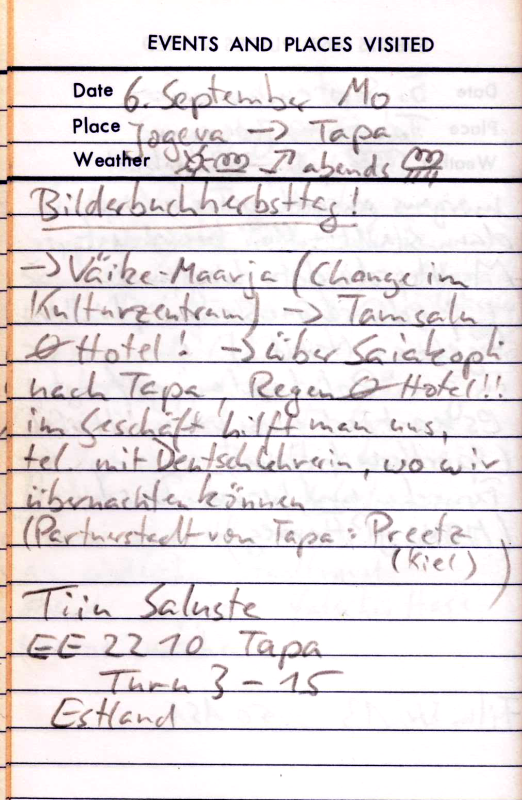 EVENTS AND PLACES VISITED
Date 6. September Mo
Place Jogeva -> Tapa
Weather abends
Bilderbuchherbsttag!
-> Väike-Maarja (Change im
Kulturzentrum) -> Tamsalu
Ø Hotel! -> über Saiakopli
nach Tapa, Regen Ø Hotel!!
im Geschäft hilft man uns,
tel. mit Deutschlehrerin, wo wir
übernachten können
(Partnerstadt von Tapa: Preetz
(Kiel) )
Tiin Saluste
EE 2210 Tapa
Turu 3 - 15
Estland